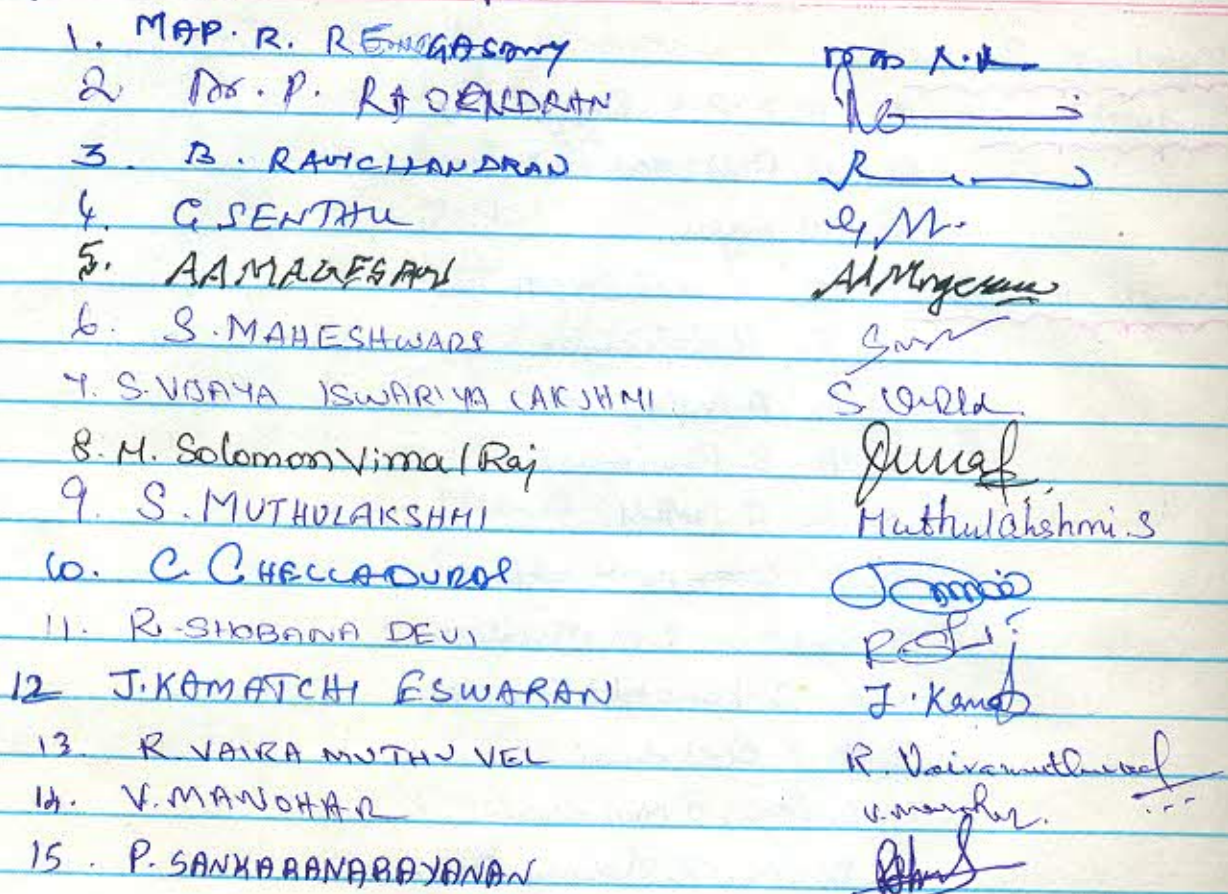 1. MAP. R. RENGASAMY
2 Dr. P. RAJENDRAN
3. B. RAVICHANDRAN
4. G SENTHIL
5. AA MAGESAN
6. S. MAHESHWARI
7. S. VIJAYA ISWARIYA LAKSHMI S.
8. M. Solomon Vimal Raj
9. S. MUTHULAKSHMI Muthulakshmi.S
10. C. CHELLADURAI
11. R. SHOBANA DEVI
12 J. KAMATCHI ESWARAN J.
13. R. VAIRA MUTHU VEL R. Vairamuthuvel
14. V. MANOHAR V. Manohar.
15. P. SANKARANARAYANAN